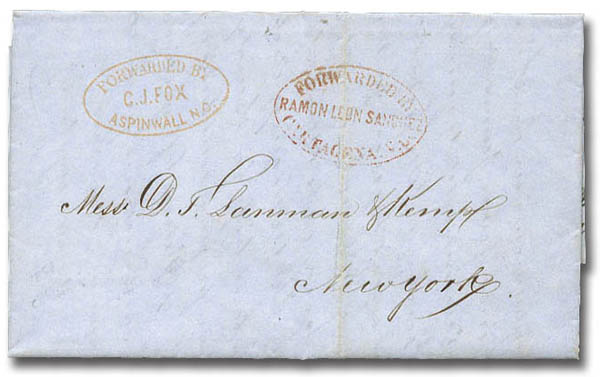 FORWARDED BY
C.J. FOX
ASPINWALL N.G.
FORWARDED BY
RAMON LEON SANCHEZ
CARTAGENA, N.G.
Mess. D. T. Lanman & Kemp
New York.